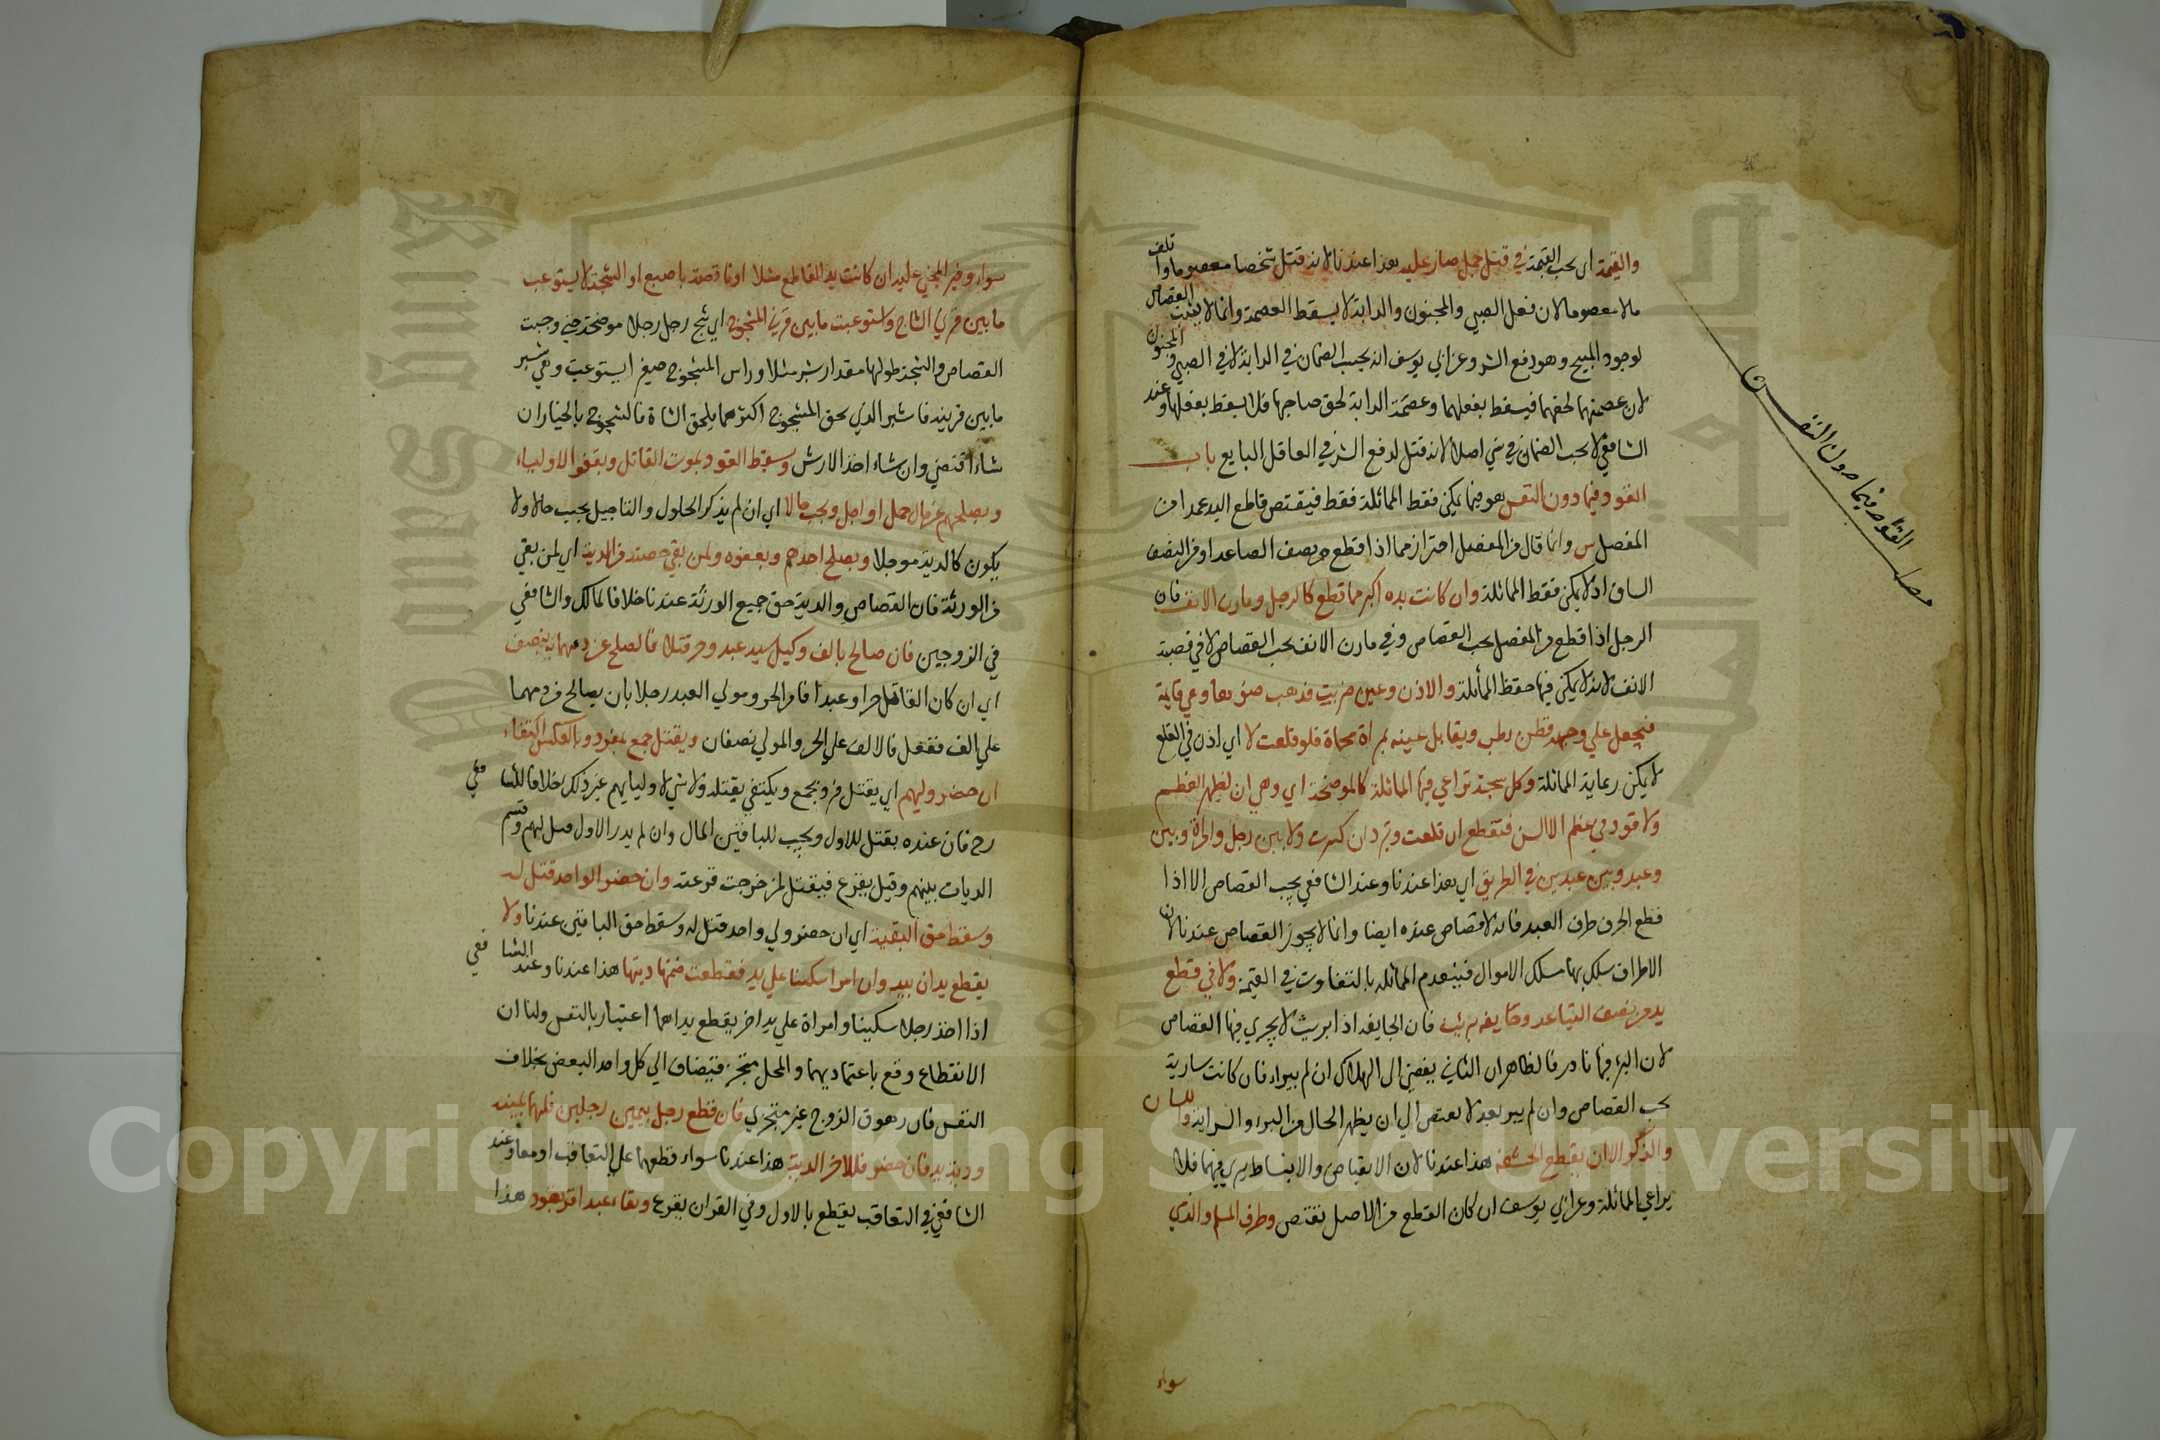 والقيمة اي يجب القيمة في قتل جمل صار عليه هذا عندنا لانه قتل شخصا معصوما واتلف
مالا معصوما لان فعل الصبي والمجنون والدابة لا يسقط العصمة وانما لا يثبت القصاص
لوجود المبيح وهو دفع الشر وعن ابي يوسف انه يجب الضمان في الدابة لا في الصبي والمجنون
لان عصمتهما لحقهما فيسقط بفعلهما وعصمة الدابة لحق صاحبها فلا يسقط بفعلها وعند
الشافعي لا يجب الضمان في شي اصلا لانه قتل لدفع الشر في العاقل البايع باب
القود فيما دون النفس هو فيما يمكن فقط المماثلة فقط فيقتص قاطع اليد عمدا من
المفصل س وانما قال من المفصل احتراز مما اذا قطع من نصف الساعد او من نصف
الساق اذ لا يمكن فقط المماثلة وان كانت يده اكبر مما قطع كالرجل ومارن الانف فان
الرجل اذا قطع من المفصل يجب القصاص وفي مارن الانف يجب القصاص لا في قصبة
الانف لانه لا يمكن فيها حفظ المماثلة والاذن وعين ضربت فذهب ضوءها وهي قايمة
فيجعل علي وجهه قطن رطب ويقابل عينه بمراة محماة فلو قلعت لا اي اذن في القلع
لا يمكن رعاية المماثلة وكل شجة تراعي فيها المماثلة كالموضحة اي وهي ان يظهر العظم
ولا قود في عظم الا السن فتقطع ان قلعت وتبرد ان كسرت ولا بين رجل وامراة وبين
وعبد وبين عبدين في الطريق اي هذا عندنا وعند الشافعي يجب القصاص الا اذا
قطع الحر طرف العبد فانه لا قصاص عنده ايضا وانما لا يجوز القصاص عندنا لان
الاطراف سلك بها مسلك الاموال فينعدم المماثلة بالتفاوت في القيمة ولا في قطع
يد من نصف الساعد وجايفة برئت فان الجايفة اذا برئت لا يجري فيها القصاص
لان البرء فيها نادر فالظاهر ان الثاني يفضي الى الهلاك ان لم يبراء فان كانت سارية
يجب القصاص وان لم يبر بعد لا يقتص الي ان يظهر الحال من البرء والسراية واللسان
والذكر الا ان يقطع الحشفة هذا عندنا لان الانقباض والانبساط يجري فيهما فلا
يراعي المماثلة وعن ابي يوسف ان كان القطع من الاصل يقتص وطرف المسلم والذمي
سواء
القود فيما دون النفس
سواء وخير المجني عليه ان كانت يد القاطع شلا او ناقصة باصبع او الشجة لا يستوعب
ما بين قرني الشاج واستوعبت ما بين قرني المشجوج اي شج رجل رجلا موضحة حتى وجبت
القصاص والشجة طولها مقدار شبر مثلا وراس المشجوج صغير استوعبت وهي شبر
ما بين قرنيه فالشبر الذي لحق المشجوج اكثر مما يلحق الشاج فالمشجوج بالخيار ان
شاء اقتص وان شاء اخذ الارش وسقط القود بموت القاتل وبعفو الاولياء
وبصلحهم عن مال جمل او اجل ويجب حالا اي ان لم يذكر الحلول والتاجيل يجب حالا ولا
يكون كالدية موجلا وبصلح احدهم وبعفوه ولمن بقي حصته من الدية اي لمن بقي
من الورثة فان القصاص والدية حق جميع الورثة عندنا خلافا لمالك والشافعي
في الزوجين فان صالح بالف وكيل سيد عبد وحر قتلا فالصلح عن دمهما بنصف
اي ان كان القاتل حرا وعبدا فامر الحر ومولي العبد رجلا بان يصالح من دمهما
علي الف ففعل فالالف علي الحر والمولي نصفان ويقتل جمع بفرد وبالعكس اكتفاء
ان حضر وليهم اي يقتل فرد بجمع ويكتفي بقتله ولا شي لاوليايهم غير ذلك خلافا للشافعي
رح فان عنده يقتل للاول ويجب للباقين المال وان لم يدر الاول قتل لهم وقسم
الديات بينهم وقيل يقرع فيقتل لمن خرجت قرعته وان حضر الواحد قتل له
وسقط حق البقية اي ان حضر ولي واحد قتل له وسقط حق الباقين عندنا ولا
يقطع يدان بيد وان امرا سكينا علي يد فقطعت ضمنا ديتها هذا عندنا وعند الشافعي
اذا اخذ رجل سكينا وامراة علي يد اخر يقطع يداهما اعتبار بالنفس ولنا ان
الانقطاع وقع باعتماديهما والمحل متجز فيضاف الي كل واحد البعض بخلاف
النفس فان زهوق الروح غير متجزي فان قطع رجل يمين رجلين فلهما يمينه
ودية يد فان حضر فللاخر الدية هذا عندنا سواء قطعهما علي التعاقب او معا وعند
الشافعي في التعاقب يقطع بالاول وفي القران يقرع ويقاد عبد اقر بقود هذا